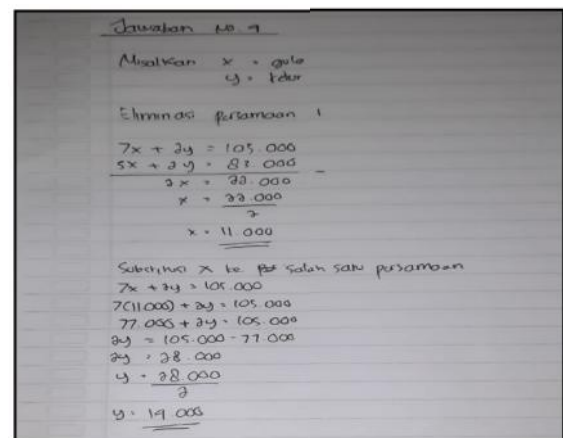 Jawaban No. 9
Misalkan x = gula
y = telur
Eliminasi persamaan 1
7x + 2y = 105.000
5x + 2y = 83.000 -
2x = 22.000
x = 22.000
2
x = 11.000
Substitusi x ke salah satu persamaan
7x + 2y = 105.000
7(11.000) + 2y = 105.000
77.000 + 2y = 105.000
2y = 105.000 - 77.000
2y = 28.000
y = 28.000
2
y = 14.000